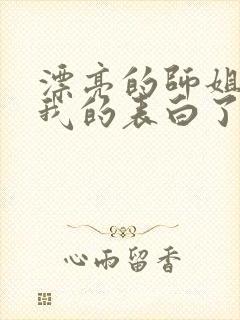 漂亮的师姐
我的表白了
心雨留香